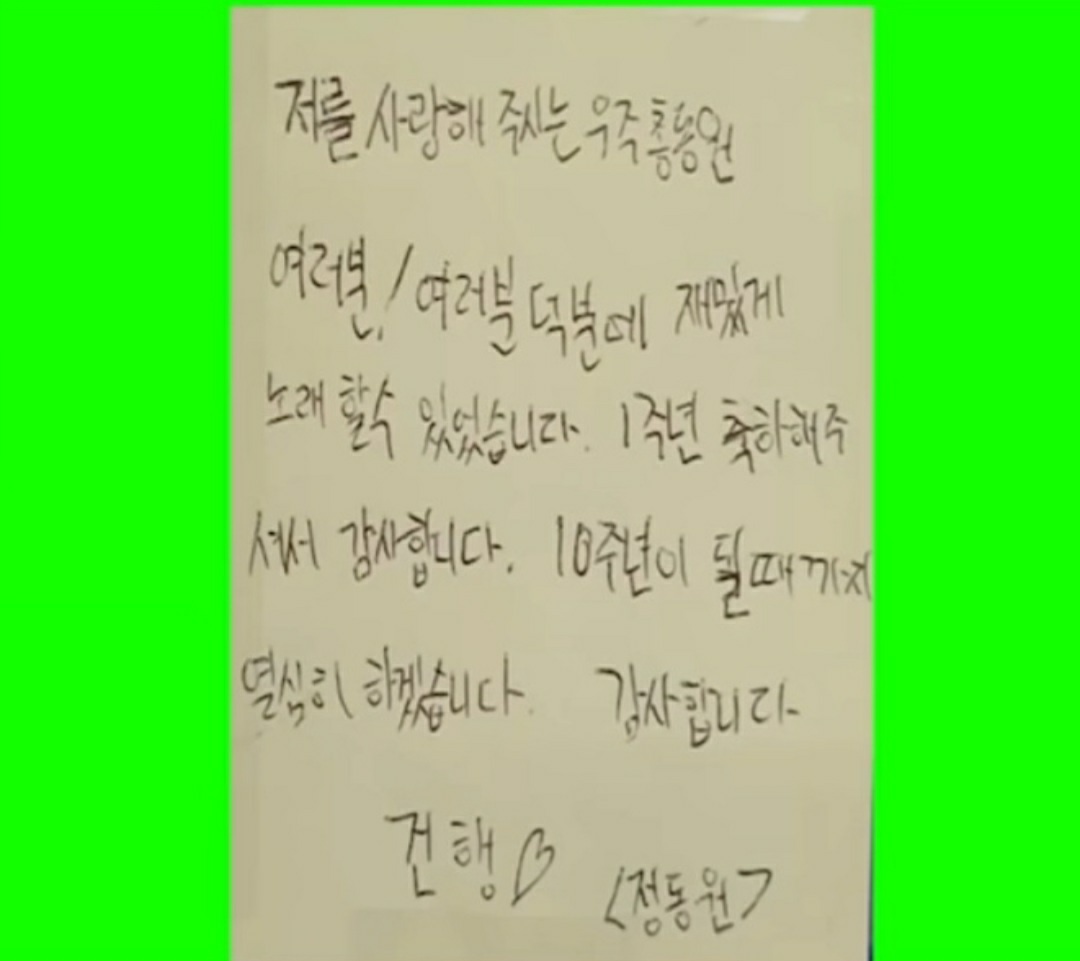 저를 사랑해 주시는 우주총동원
여러분! 여러분 덕분에 재밌게
노래 할수 있었습니다. 1주년 축하해주
셔서 감사합니다. 10주년이 될때까지
열심히 하겠습니다. 감사합니다
건행♡
<정동원>